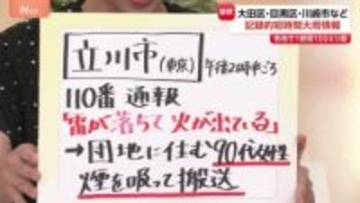 Nスタ
速報 大田区・目黒区・川崎市など
記録的短時間大雨情報
立川市(東京)午後2時半ごろ
110番 通報
「雷が落ちて 火が出ている」
→団地に住む 90代女性
煙を吸って搬送